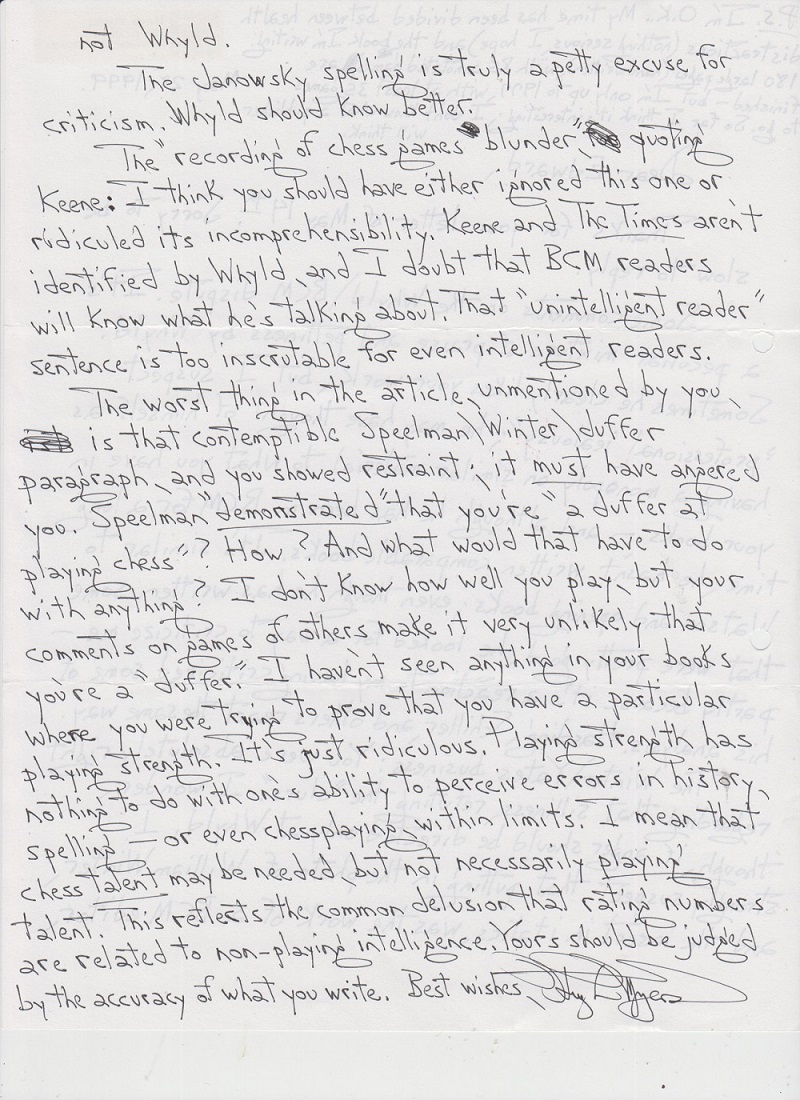 not Whyld.
The Janowsky spelling is truly a petty excuse for
criticism. Whyld should know better.
The "recording of chess games blunder", quoting
Keene: I think you should have either ignored this one or
ridiculed its incomprehensibility. Keene and The Times aren't
identified by Whyld, and I doubt that BCM readers
will know what he's talking about. That "unintelligent reader"
sentence is too inscrutable for even intelligent readers.
The worst thing in the article, unmentioned by you,
is that contemptible Speelman\Winter\duffer
paragraph, and you showed restraint; it must have angered
you. Speelman "demonstrated" that you're "a duffer at
playing chess"? How? And what would that have to do
with anything? I don't know how well you play, but your
comments on games of others make it very unlikely that
you're a "duffer." I haven't seen anything in your books
where you were trying to prove that you have a particular
playing strength. It's just ridiculous. Playing strength has
nothing to do with one's ability to perceive errors in history,
spelling – or even chessplaying, within limits. I mean that
chess talent may be needed, but not necessarily playing
talent. This reflects the common delusion that rating numbers
are related to non-playing intelligence. Yours should be judged
by the accuracy of what you write. Best wishes,